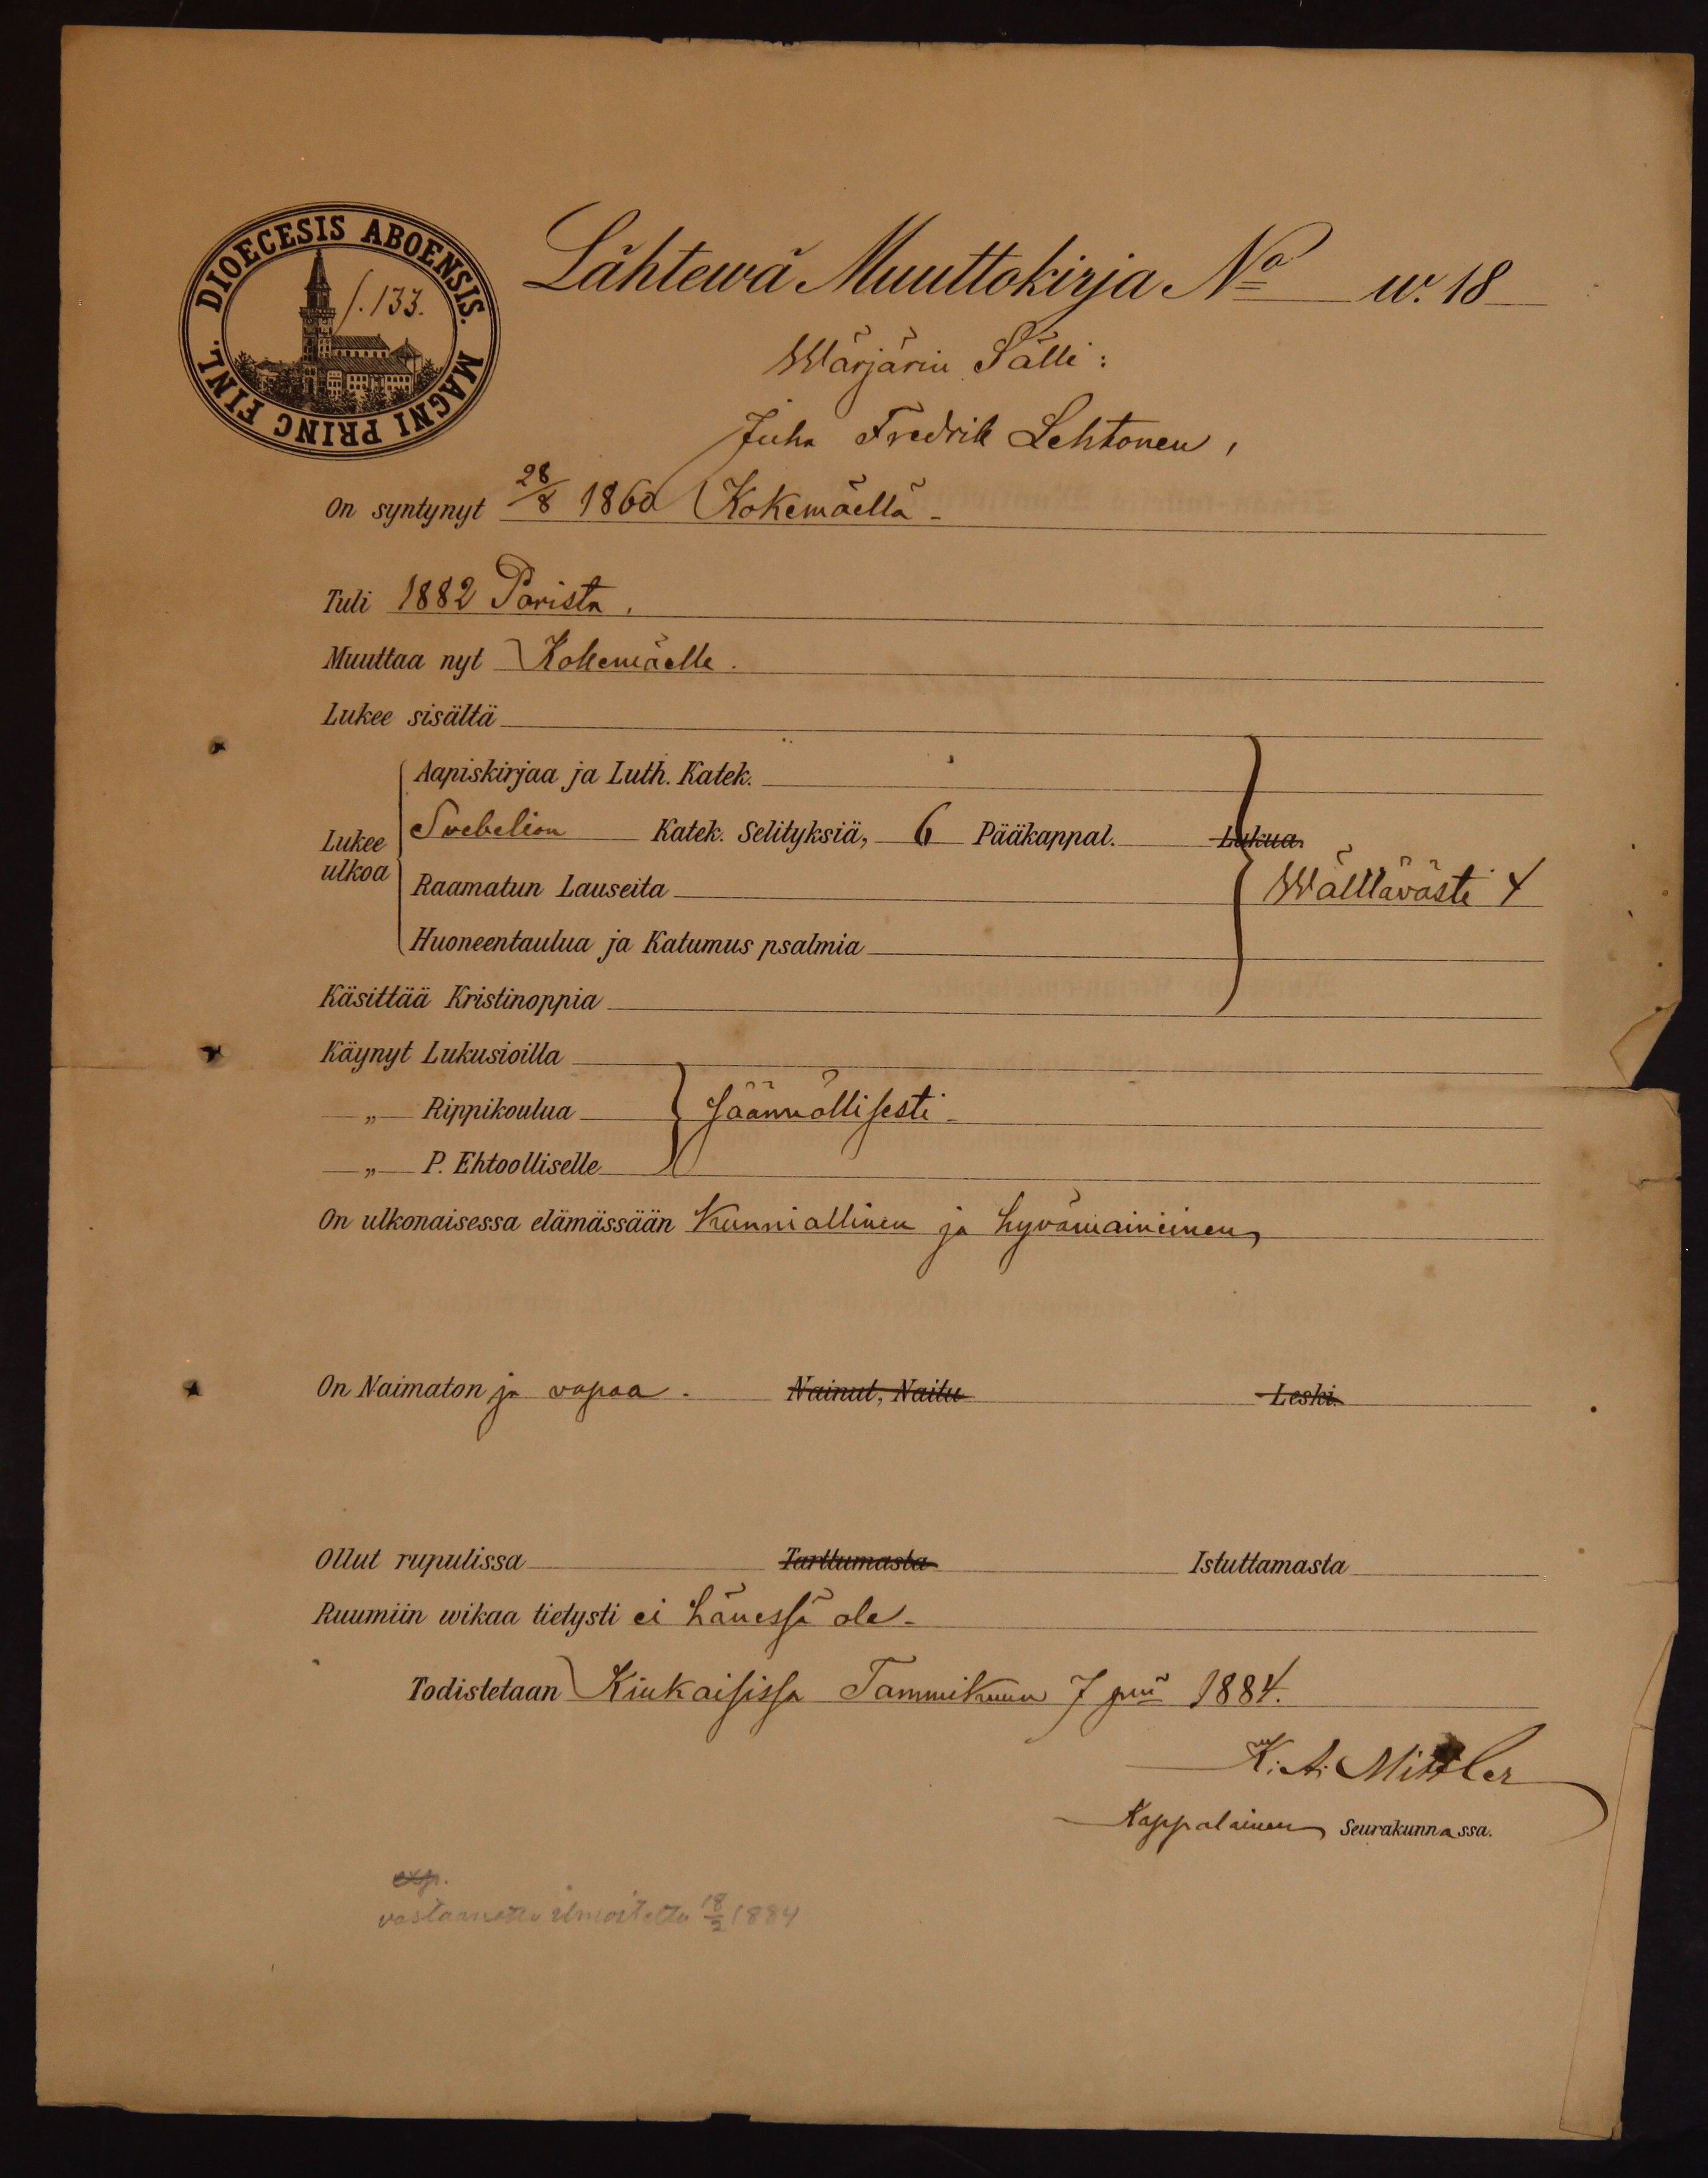 DIOECESIS ABOENSIS. MAGNI PRINC FINL.
s. 133.
Lähtewä Muuttokirja No w. 18
Wärjärin Sälli:
Juha Fredrik Lehtonen,
On syntynyt 28/8 1860 Kokemäellä -
Tuli 1882 Porista.
Muuttaa nyt Kokemäelle.
Lukee sisältä
Aapiskirjaa ja Luth. Katek.
Lukee ulkoa Svebelion Katek. Selityksiä, 6 Pääkappal. Lukua.
Raamatun Lauseita Wälttäväste
Huoneentaulua ja Katumus psalmia
Käsittää Kristinoppia
Käynyt Lukusioilla
—„— Rippikoulua Säännöllisesti -
—„— P. Ehtoolliselle
On ulkonaisessa elämässään Kunniallinen ja hyvämaineinen
On Naimaton ja vapaa. Nainut, Naitu Leski.
Ollut rupulissa Tarttumasta Istuttamasta
Ruumiin wikaa tietysti ei hänessä ole -
Todistetaan Kiukaisissa Tammikuun 7 pnä 1884.
K. A. Mittler
Kappalainen Seurakunnassa.
exp.
vastaanotettu ilmoitettu 18/2 1884